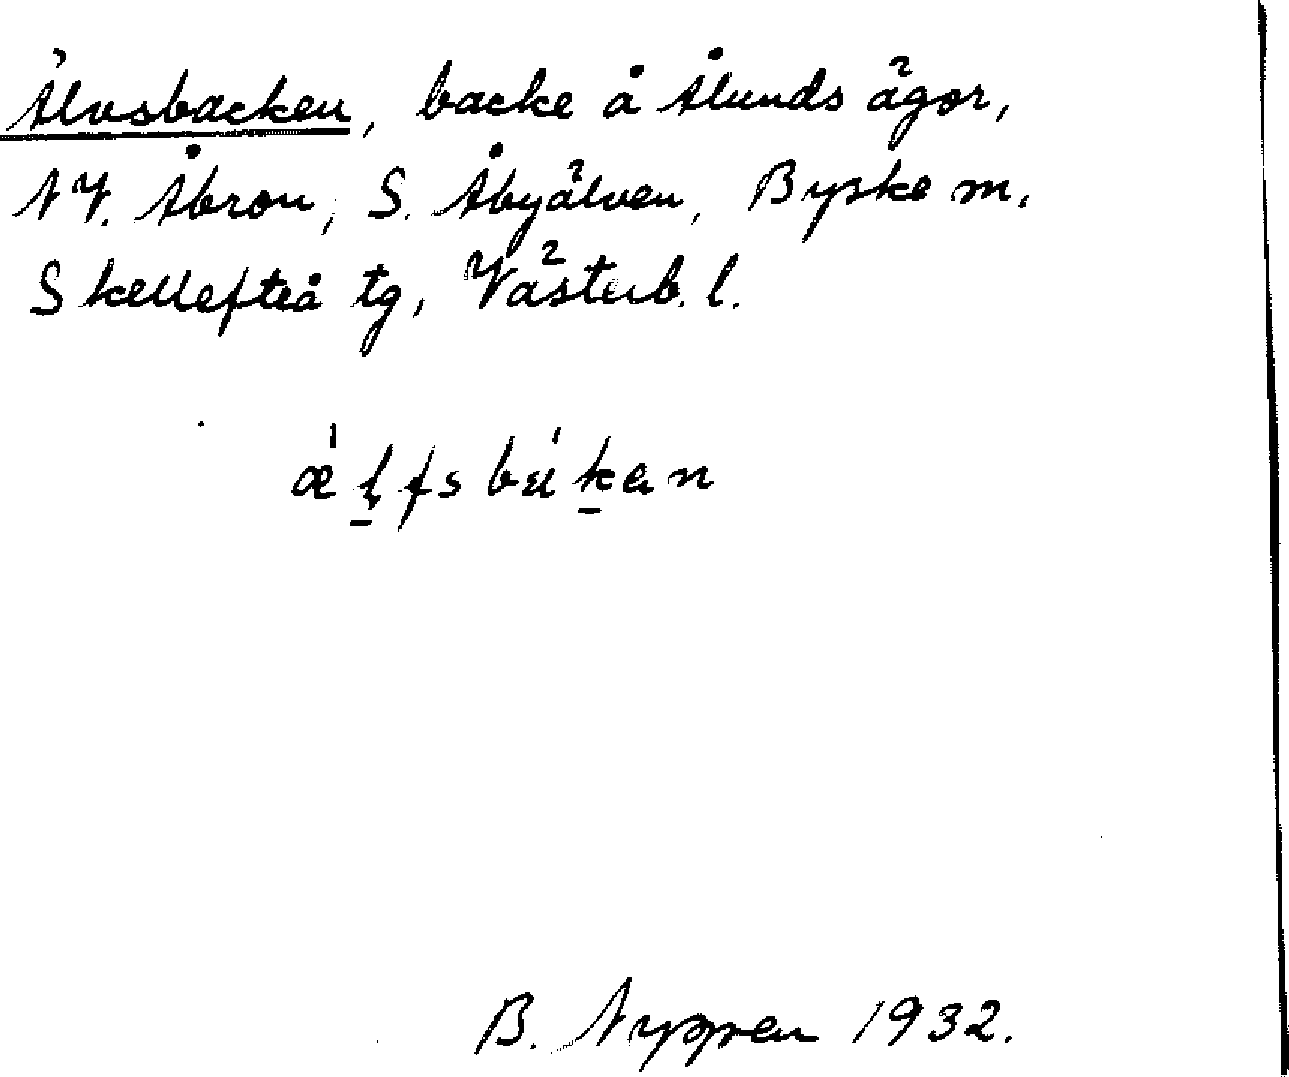 Älvsbacken, backe å Ålunds ägor,
NV. Åbron, S. Åbyälven, Byske sn.
Skellefteå tg, Västerb. l.
ǽl̠fsbákan
B. 1932.